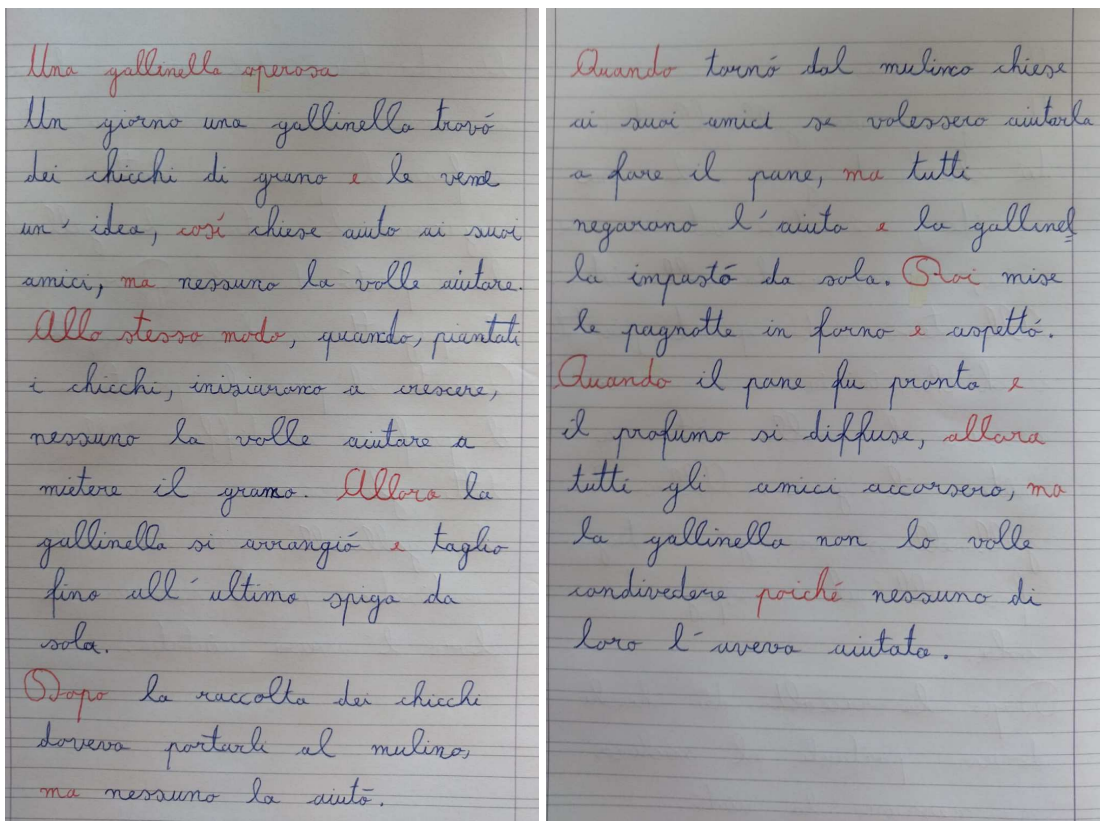 Una gallinella operosa
Un giorno una gallinella trovó
dei chicchi di grano e le venne
un' idea, cosí chiese aiuto ai suoi
amici, ma nessuno la volle aiutare.
Allo stesso modo, quando, piantati
i chicchi, iniziarono a crescere,
nessuno la volle aiutare a
mietere il grano. Allora la
gallinella si arrangió e taglio
fino all' ultima spiga da
sola.
Dopo la raccolta dei chicchi
doveva portarli al mulino,
ma nessuno la aiutó.
Quando tornó dal mulino chiese
ai suoi amici se volessero aiutarla
a fare il pane, ma tutti
negarano l' aiuto e la gallinel
la impastó da sola. Poi mise
le pagnotte in forno e aspettó.
Quando il pane fu pronto e
il profumo si diffuse, allora
tutti gli amici accorsero, ma
la gallinella non lo volle
condividere poiché nessuno di
loro l' aveva aiutata.